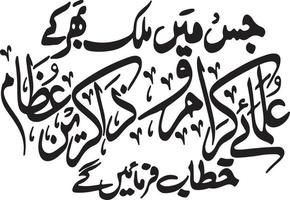 جس میں ملک بھر کے
علمائے کرام و ذاکرین عظام
خطاب فرمائیں گے